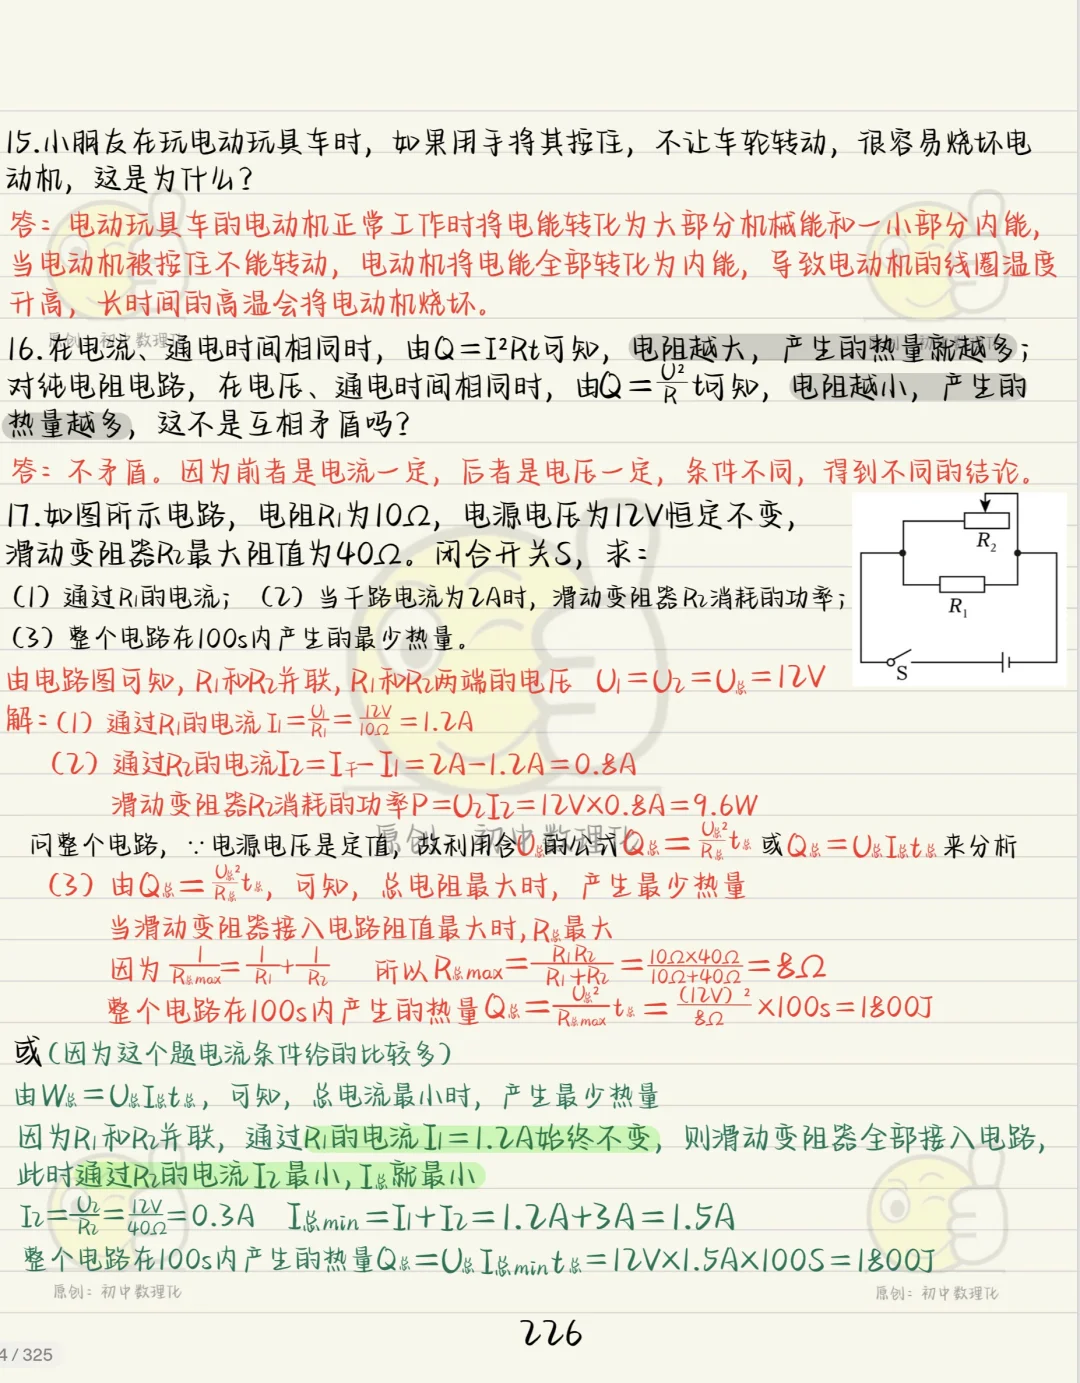 15.小朋友在玩电动玩具车时，如果用手将其按住，不让车轮转动，很容易烧坏电
动机，这是为什么？
答：电动玩具车的电动机正常工作时将电能转化为大部分机械能和一小部分内能，
当电动机被按住不能转动，电动机将电能全部转化为内能，导致电动机的线圈温度
升高，长时间的高温会将电动机烧坏。
原创：初中数理化
16.在电流、通电时间相同时，由Q=I²Rt可知，电阻越大，产生的热量就越多；
对纯电阻电路，在电压、通电时间相同时，由Q=U²/R t可知，电阻越小，产生的
热量越多，这不是互相矛盾吗？
答：不矛盾。因为前者是电流一定，后者是电压一定，条件不同，得到不同的结论。
17.如图所示电路，电阻R₁为10Ω，电源电压为12V恒定不变，
滑动变阻器R₂最大阻值为40Ω。闭合开关S，求：
(1)通过R₁的电流；(2)当干路电流为2A时，滑动变阻器R₂消耗的功率；
(3)整个电路在100s内产生的最少热量。
R₂
R₁
S
由电路图可知，R₁和R₂并联，R₁和R₂两端的电压 U₁=U₂=U总=12V
解：(1)通过R₁的电流I₁=U₁/R₁=12V/10Ω=1.2A
(2)通过R₂的电流I₂=I干-I₁=2A-1.2A=0.8A
滑动变阻器R₂消耗的功率P=U₂I₂=12V×0.8A=9.6W
原创：初中数理化
问整个电路，∵电源电压是定值，故利用含U总的公式Q总=U总²/R总 t总 或Q总=U总I总t总来分析
(3)由Q总=U总²/R总 t总，可知，总电阻最大时，产生最少热量
当滑动变阻器接入电路阻值最大时，R总最大
因为1/R总max=1/R₁+1/R₂ 所以R总max=R₁R₂/R₁+R₂=10Ω×40Ω/10Ω+40Ω=8Ω
整个电路在100s内产生的热量Q总=U总²/R总max t总=(12V)²/8Ω×100s=1800J
或(因为这个题电流条件给的比较多)
由W总=U总I总t总，可知，总电流最小时，产生最少热量
因为R₁和R₂并联，通过R₁的电流I₁=1.2A始终不变，则滑动变阻器全部接入电路，
此时通过R₂的电流I₂最小，I总就最小
I₂=U₂/R₂=12V/40Ω=0.3A I总min=I₁+I₂=1.2A+3A=1.5A
整个电路在100s内产生的热量Q总=U总I总mint总=12V×1.5A×100S=1800J
原创：初中数理化
原创：初中数理化
226
4 / 325